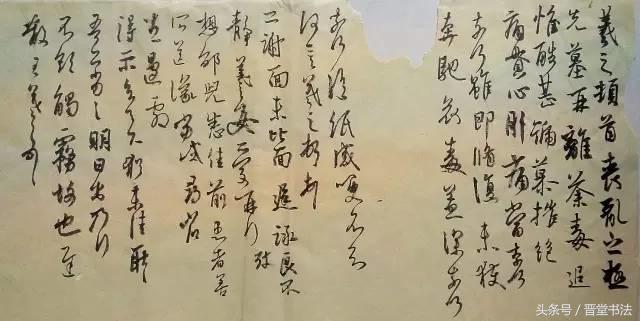 羲之頓首喪亂之極
先墓再離荼毒追
惟酷甚號慕摧絕
痛貫心肝痛當奈何
奈何雖即脩復未獲
奔馳哀毒益深奈何
奈何臨紙感哽不知
何言羲之頓首
二謝面未比面遲詠良不
靜羲之女愛再拜
想邵兒悉佳前患者善
所送議當試尋省
左邊劇
得示知足下猶未佳耿
吾亦劣劣明日出乃行
不欲觸霧故也遲
散王羲之頓首
头条号 / 晋堂书法